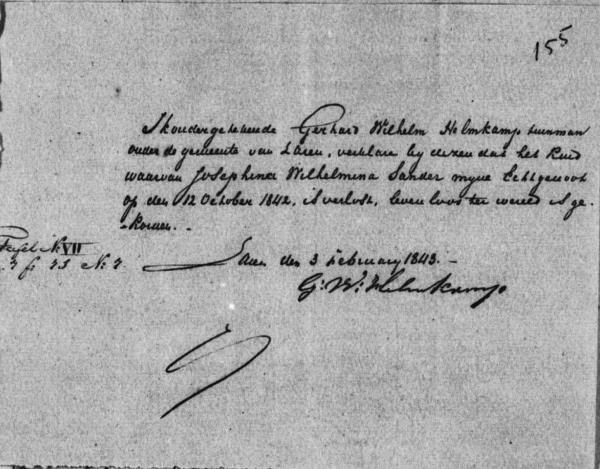 155
Ik ondergeteekende Gerhard Wilhelm Helmkamp tuinman
onder de gemeente van Laren, verklare by dezen dat het Kind
waarvan Josephina Wilhelmina Sander myne Echtgenoot
op den 12 October 1842, is verlost, levenloos ter wereld is ge-
-komen. -
N: VII
N: 7.
Laren den 3 February 1843. -
G: W: Helmkamp